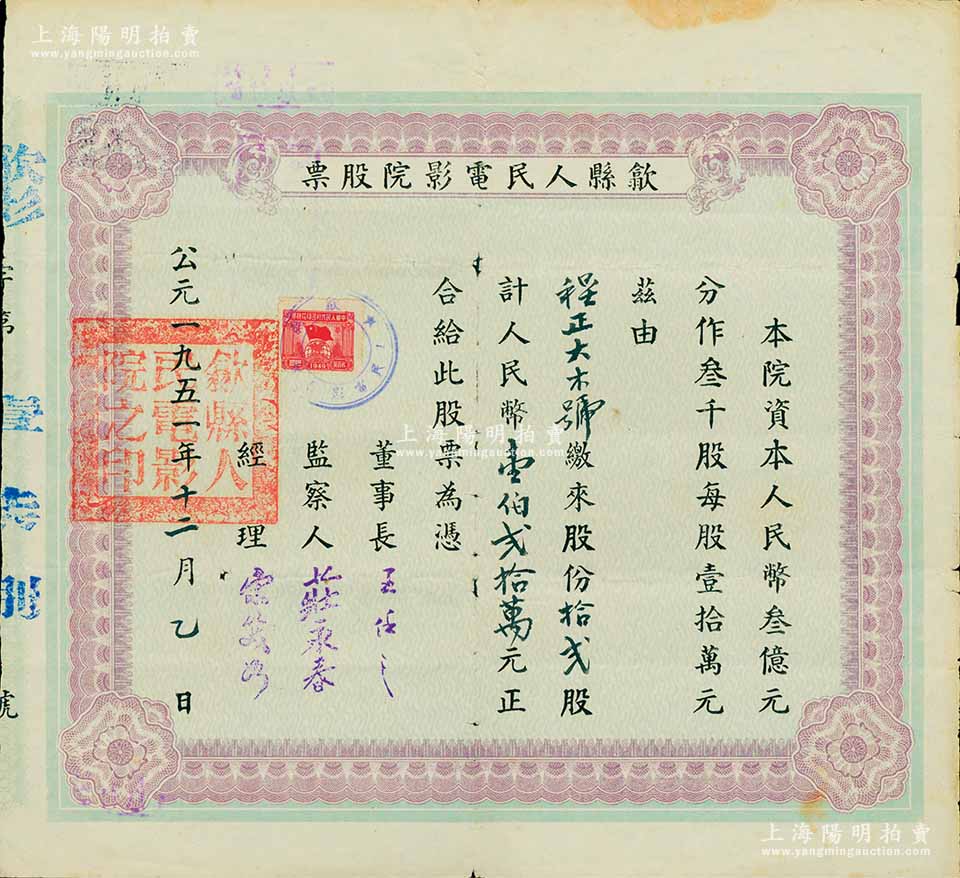 上海陽明拍賣
www.yangmingauction.com
歙縣人民電影院股票
本院資本人民幣叁億元
分作叁千股每股壹拾萬元
茲由
程正大木號繳來股份拾弍股
計人民幣壹伯弍拾萬元正
合給此股票為憑
董事長
監察人 莊承春
經理
公元一九五一年十二月乙日
歙縣人
民電影
院之印
1949
字第
號
上海陽明拍賣
www.yangmingauction.com
上海陽明拍賣
www.yangmingauction.com